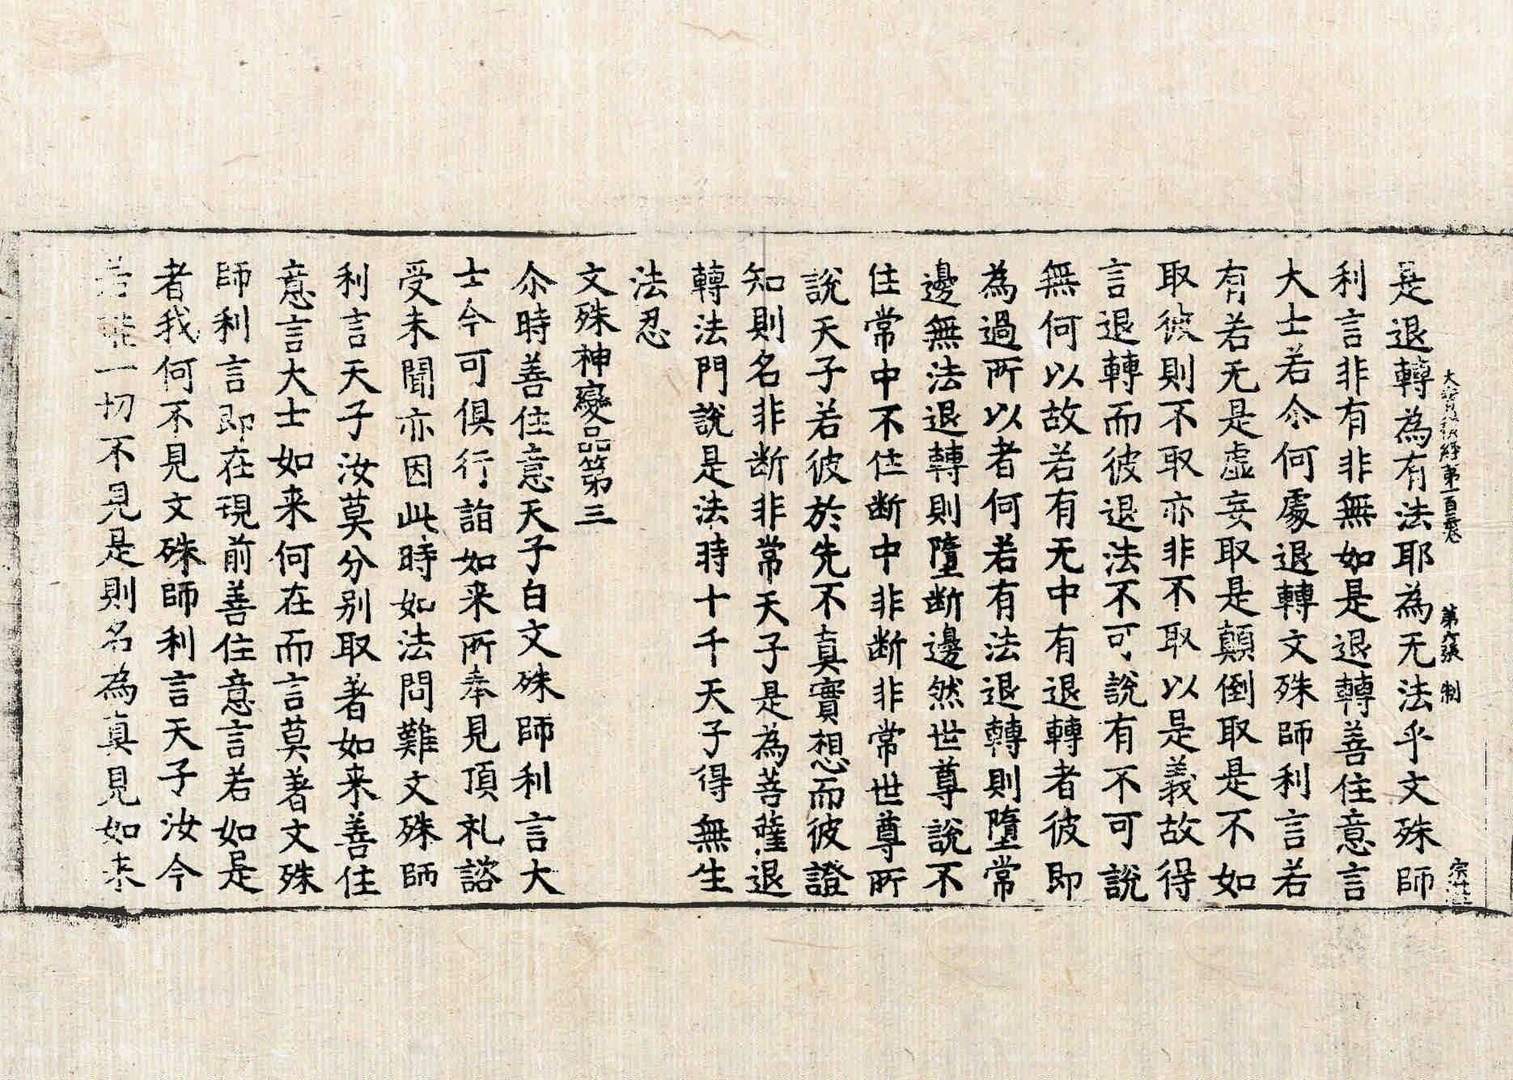 大寶積經第一百三卷 第六張 制
是退轉為有法耶為无法乎文殊師
利言非有非無如是退轉善住意言
大士若尒何處退轉文殊師利言若
有若无是虛妄取是顛倒取是不如
取彼則不取亦非不取以是義故得
言退轉而彼退法不可說有不可說
無何以故若有无中有退轉者彼即
為過所以者何若有法退轉則墮常
邊無法退轉則墮斷邊然世尊說不
住常中不住断中非断非常世尊所
說天子若彼於先不真實想而彼證
知則名非断非常天子是為菩薩退
轉法門說是法時十千天子得無生
法忍
文殊神變品第三
尒時善住意天子白文殊師利言大
士今可俱行詣如来所奉見頂礼諮
受未聞亦因此時如法問難文殊師
利言天子汝莫分别取著如来善住
意言大士如来何在而言莫著文殊
師利言即在現前善住意言若如是
者我何不見文殊師利言天子汝今
若能一切不見是則名為真見如来